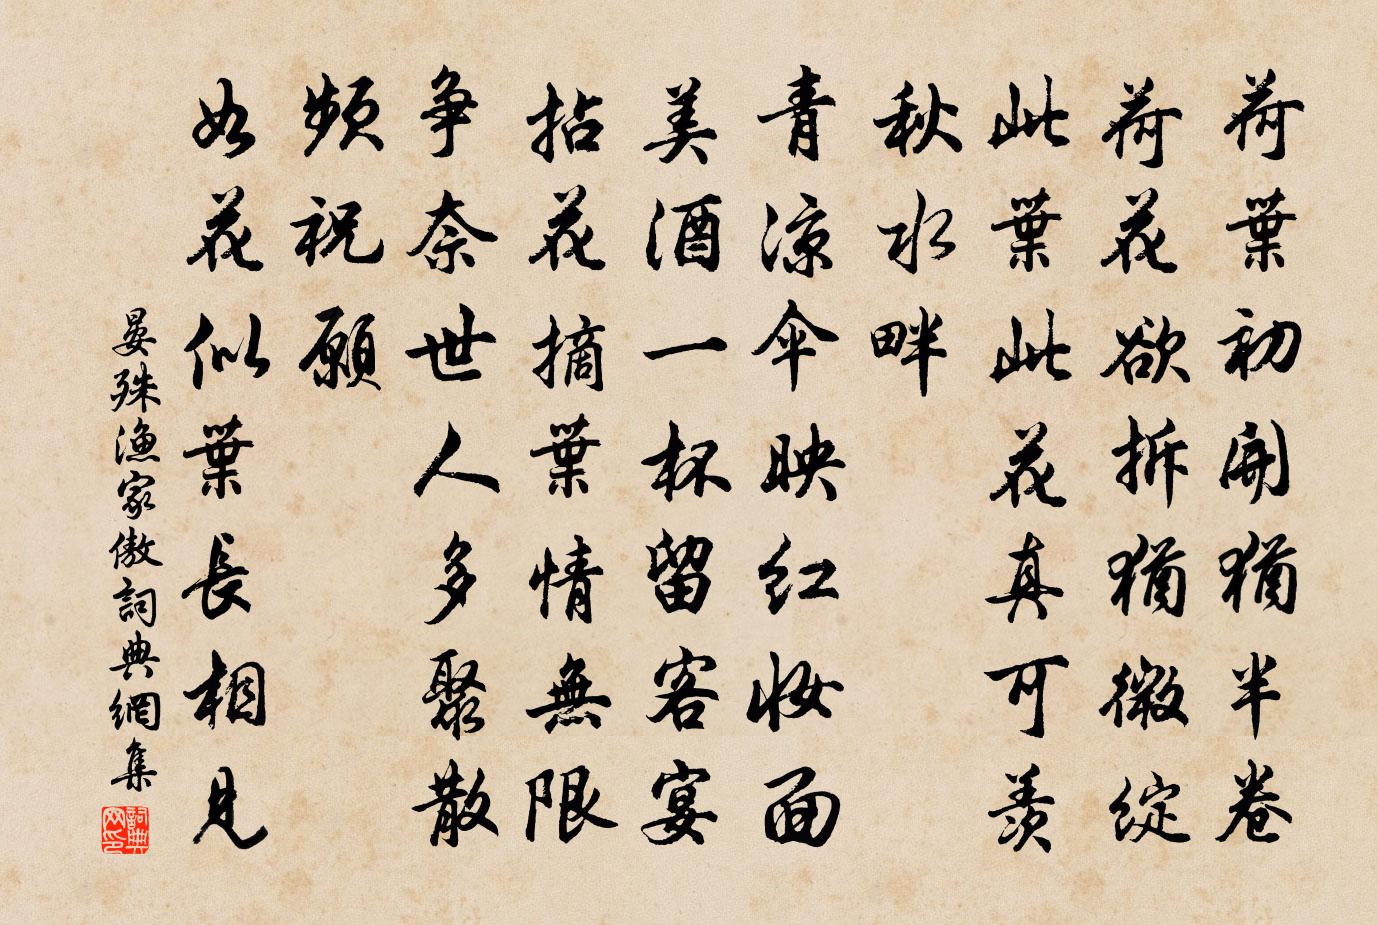 荷葉初開猶半卷
荷花欲拆猶微綻
此葉此花真可羨
秋水畔
青涼伞映红妝面
美酒一杯留客宴
拈花摘葉情無限
争奈世人多聚散
頻祝願
如花似葉長相見
晏殊漁家傲詞典網集
詞典网印